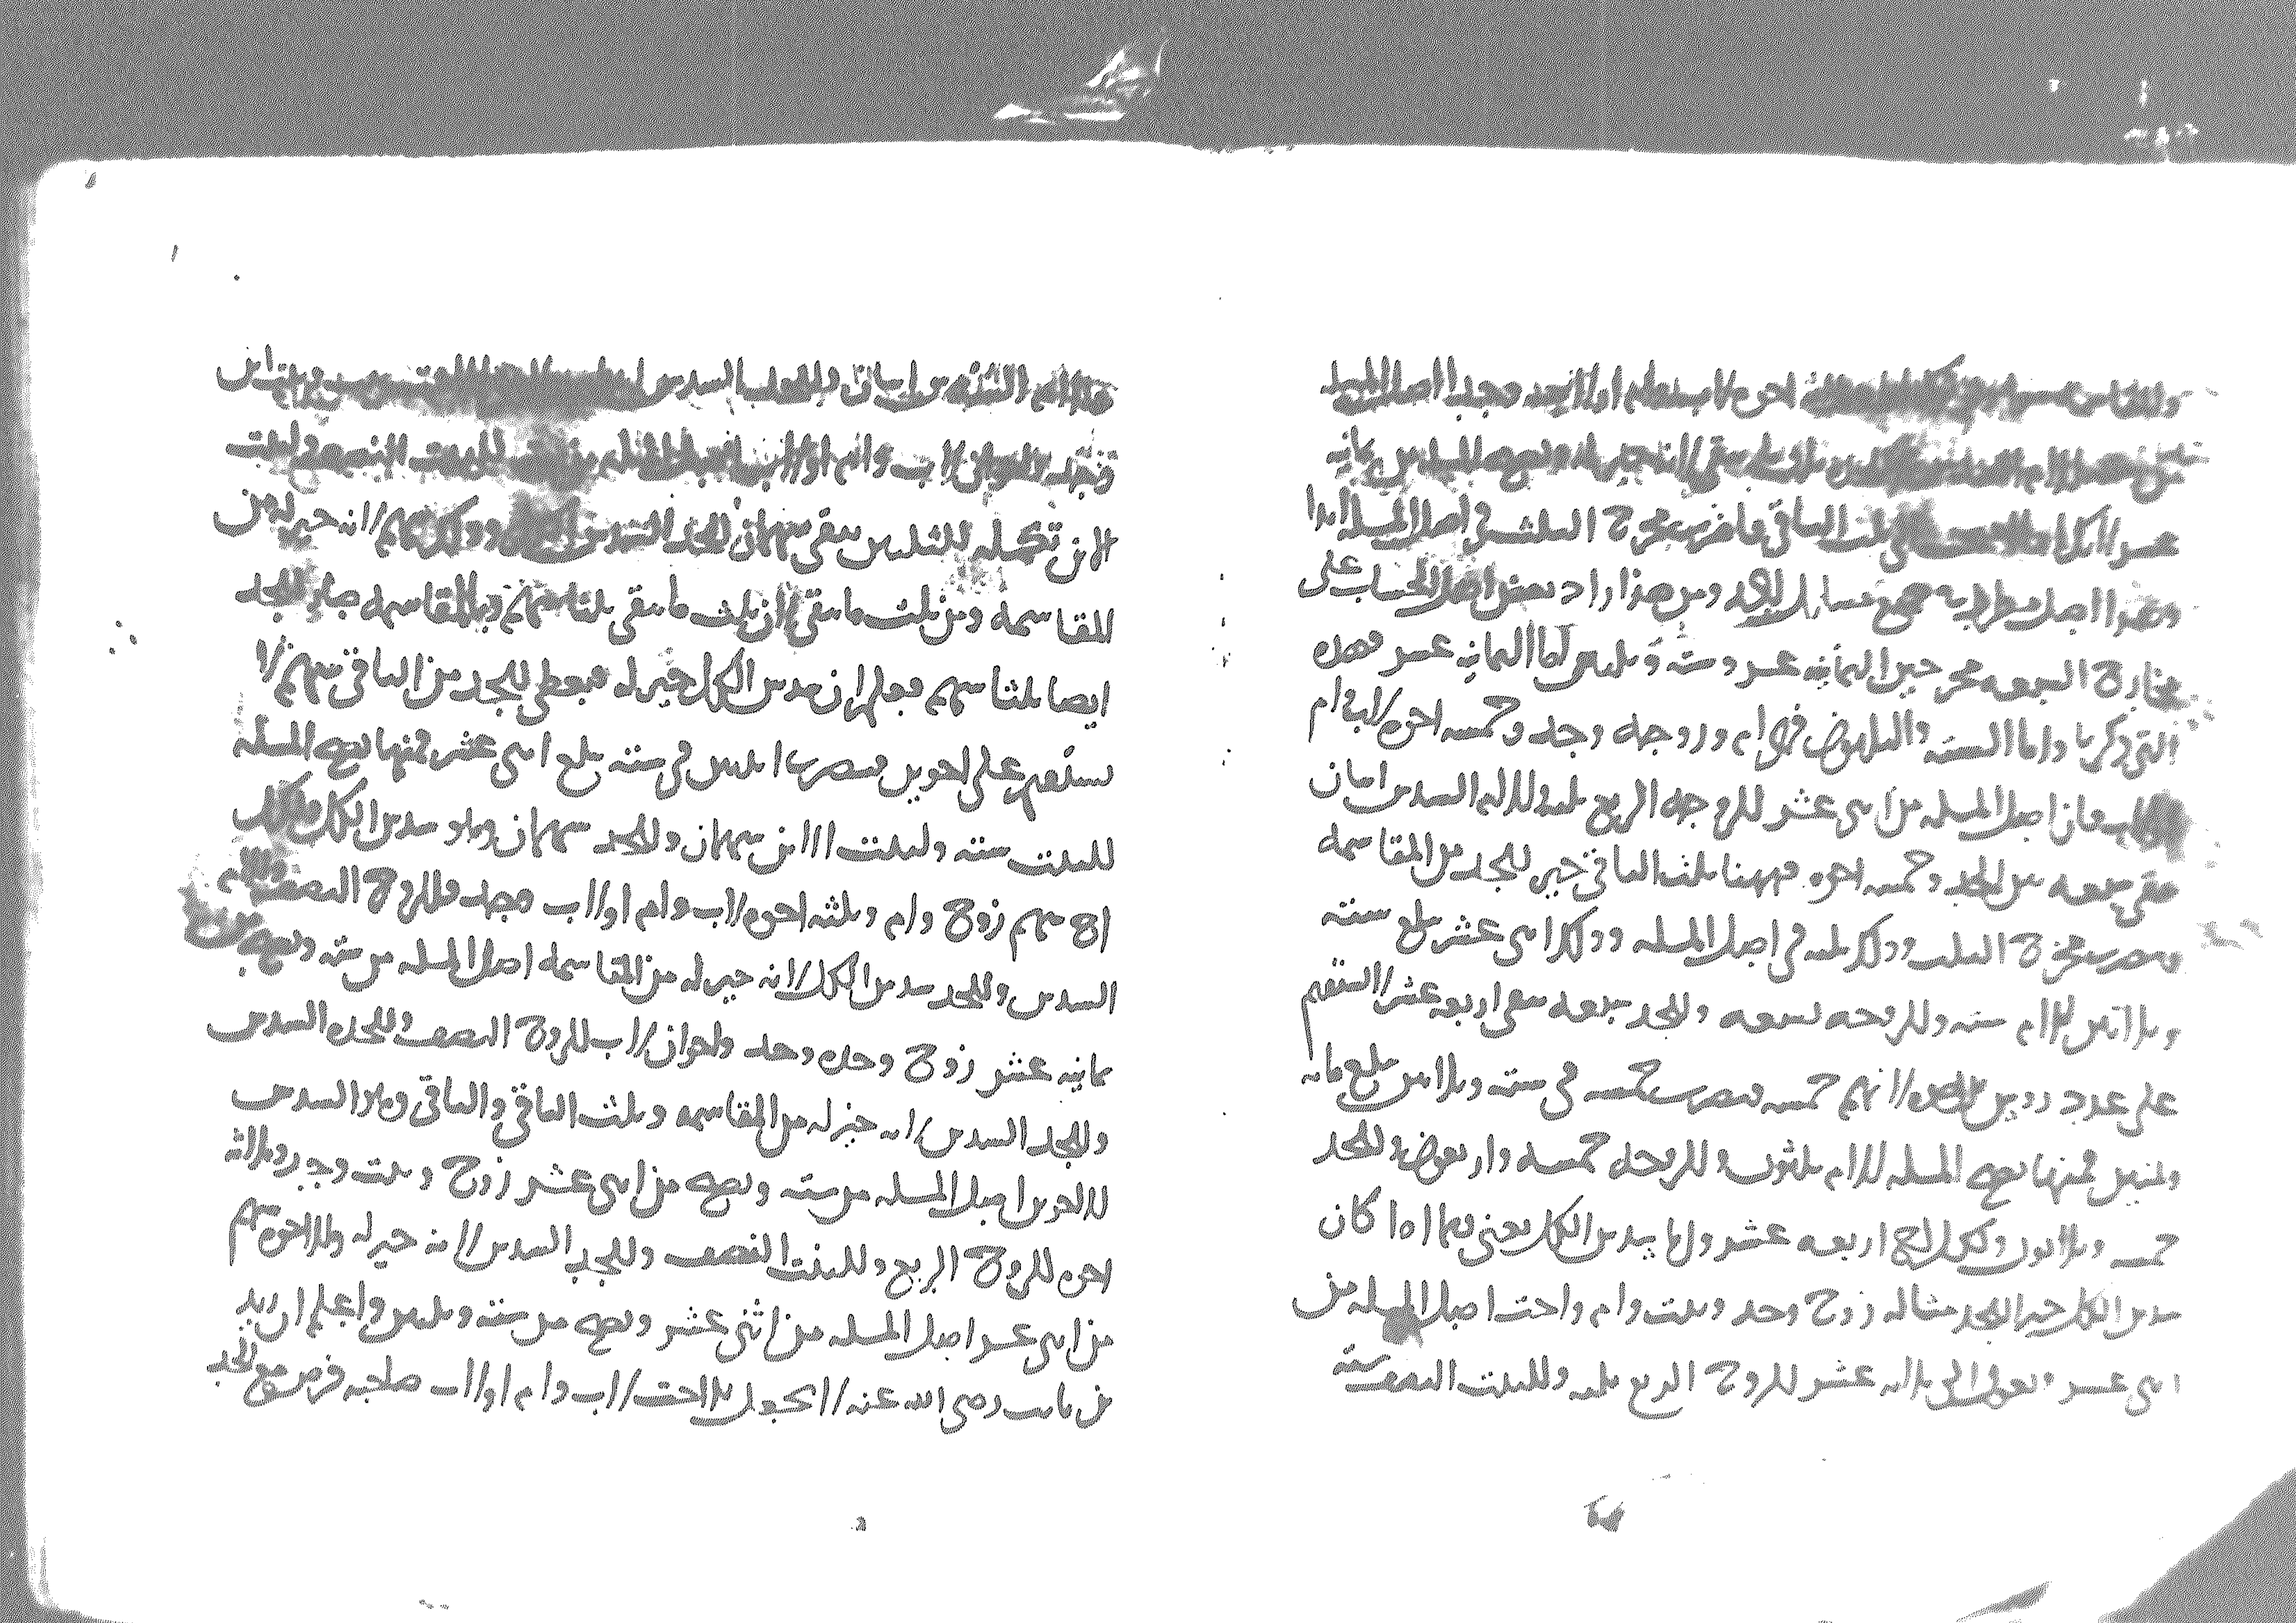 اخوه لاب وام او لاب وجد اصل المسله
ثلث ما يبقى لانه خير له وتصح المسله من ثمانيه
عشر ثلث الباقي فاضرب مخرج الثلث في اصل المسله ابدا
وهذا اصل مطرد في جميع مسايل الجد ومن هذا زاد بعض اهل الحساب على
مخارج السبعه مخرجين الثمانيه عشر وسته وثلثين اما الثمانيه عشر فهذه
التي ذكرنا واما السته والثلثون ففي ام وزوجه وجد وخمسه اخوه لاب وام
فان اصل المسله من اثنى عشر للزوجه الربع ثلثه وللام السدس اثنان
بقي سبعه بين الجد وخمسه اخوه فههنا ثلث الباقي خير للجد من المقاسمه
فيضرب مخرج الثلث وذلك ثلثه في اصل المسله وذلك اثنى عشر يبلغ سته
وثلاثين للام سته وللزوجه تسعه وللجد سبعه بقي اربعه عشر لا تستقيم
على عدد روس الاخوه لانهم خمسه فيضرب خمسه في سته وثلاثين يبلغ مائه
وثمنين فمنها تصح المسله للام ثلثون وللزوجه خمسه واربعون وللجد
خمسه وثلاثون ولكل اخ اربعه عشر واما سدس الكل يعني فيما اذا كان
سدس الكل خير للجد مثاله زوج وجد وبنت وام واخت اصل المسله من
اثنى عشر وتعول الى ثلاثه عشر للزوج الربع ثلثه وللبنت النصف سته
السدس
لاب وام او لاب للبنت النصف ولبنت
الابن تكمله للثلثين بقي سهمان للجد السدس وذلك سهم لانه خير له من
المقاسمه ومن ثلث ما بقي لان ثلث ما بقي ثلثا سهم وبالمقاسمه صار للجد
ايضا ثلثا سهم فعلم ان سدس الكل خير له فيعطى للجد من الباقي سهم لا
يستقيم على اخوين فيضرب اثنين في سته يبلغ اثنى عشر فمنها تصح المسله
للبنت سته ولبنت الابن سهمان وللجد سهمان وهو سدس الكل ولكل
اخ سهم زوج وام وثلثه اخوه لاب وام او لاب وجد فللزوج النصف وللام
السدس وللجد سدس الكل لانه خير له من المقاسمه اصل المسله من سته وتصح من
ثمانيه عشر زوج وجده وجد واخوان لاب للزوج النصف وللجده السدس
وللجد السدس لانه خير له من المقاسمه وثلث الباقي والباقي وهو السدس
للاخوين اصل المسله من سته وتصح من اثنى عشر زوج وبنت وجد وثلاثه
اخوه للزوج الربع وللبنت النصف وللجد السدس لانه خير له وللاخوه سهم
من اثنى عشر اصل المسله من اثنى عشر وتصح من سته وثلثين واعلم ان زيد
بن ثابت رضي الله عنه لا يجعل الاخت لاب وام او لاب صاحبه فرض مع الجد